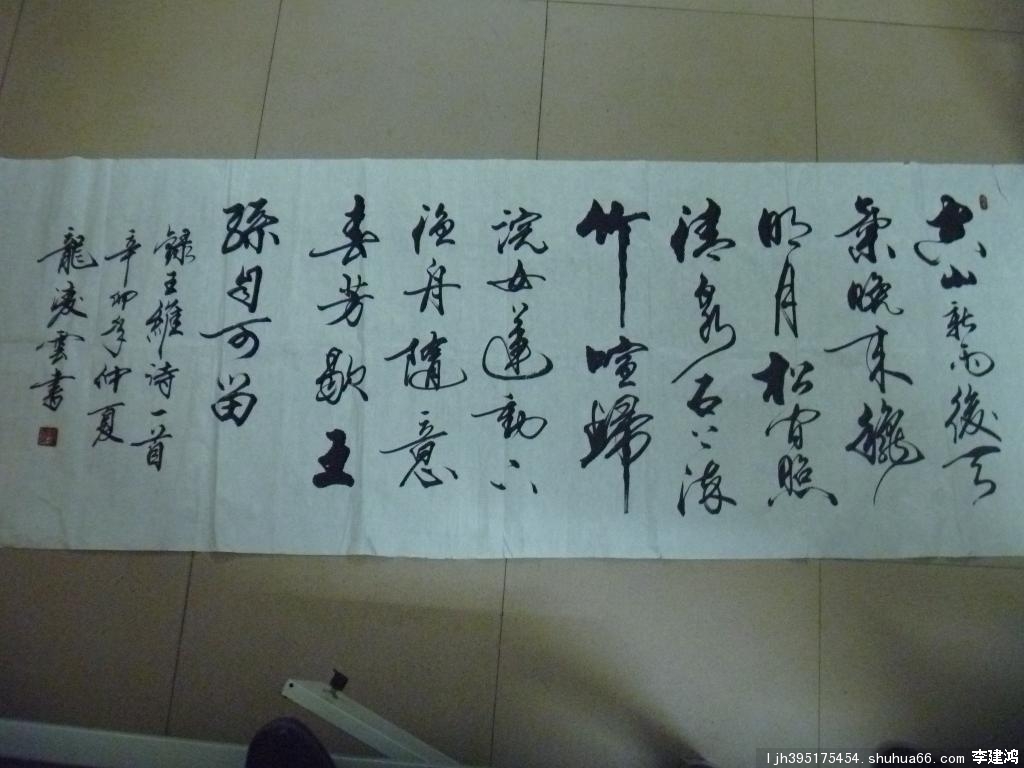 空山新雨後天
氣晚来穐
明月松间照
清泉石上流
竹喧歸
浣女蓮動下
渔舟隨意
春芳歇王
孫自可留
録王維诗一首
辛卯年仲夏
龍凌雲书
ljh395175454. shuhua66. com 李建鸿